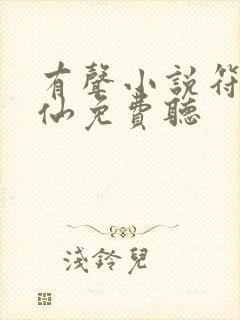 有聲小說符
仙免費聽
淺鈴兒